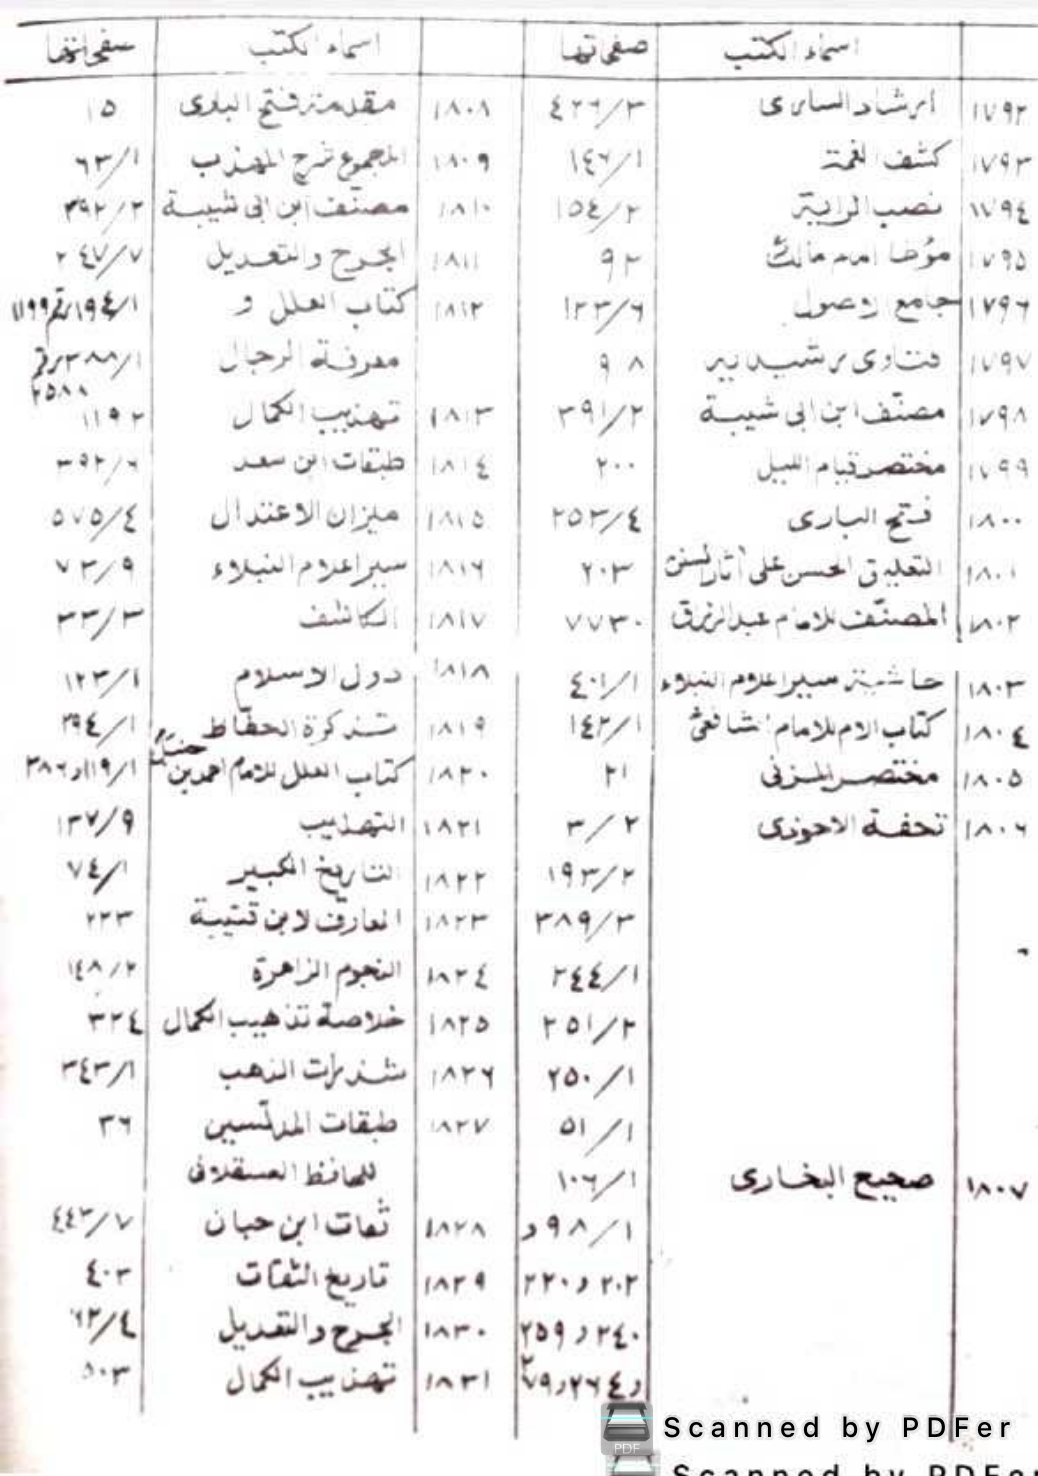 اسماء الكتب صفحاتها
١٧٩٢ ارشاد الساری ٤٢٦/٣
١٧٩٣ كشف الغمة ١٤٦/١
١٧٩٤ نصب الراية ١٥٤/٢
١٧٩٥ مؤطا امام مالك ٩٢
١٧٩٦ جامع الاصول ١٢٣/٦
١٧٩٧ فتاوی رشيديه ٩٨
١٧٩٨ مصنّف ابن ابی شيبة ٣٩١/٢
١٧٩٩ مختصر قيام الليل ٢٠٠
١٨٠٠ فتح الباری ٢٥٣/٤
١٨٠١ التعليق الحسن علی آثار السنن ٢٠٣
١٨٠٢ المصنّف للامام عبد الرزاق ٧٧٣٠
١٨٠٣ حاشية سير اعلام النبلاء ٤٠١/١
١٨٠٤ كتاب الام للامام الشافعی ١٤٢/١
١٨٠٥ مختصر المزنی ٢١
١٨٠٦ تحفة الاحوذی ٣/٢
١٩٣/٢
٣٨٩/٣
٢٤٤/١
٢٥١/٢
٢٥٠/١
٥١/١
١٨٠٧ صحيح البخاری ١٠٦/١
٩٨/١ و
٢٠٢ و ٢٢٠
٢٤٠ و ٢٥٩
و ٢٦٤ و
اسماء الكتب صفحاتها
١٨٠٨ مقدمة فتح الباری ١٥
١٨٠٩ المجموع شرح المهذب ٦٣/١
١٨١٠ مصنّف ابن ابی شيبة ٣٩٢/٢
١٨١١ الجرح والتعديل ٢٤٧/٧
١٨١٢ كتاب العلل و ١٩٤/١ رقم ١١٩٩
معرفة الرجال ٣٨٨/١ رقم
٢٥٨٨
١٨١٣ تهذيب الكمال ١١٩٢
١٨١٤ طبقات ابن سعد ٣٩٢/٦
١٨١٥ ميزان الاعتدال ٥٧٥/٤
١٨١٦ سير اعلام النبلاء ٧٣/٩
١٨١٧ الكاشف ٣٣/٣
١٨١٨ دول الاسلام ١٢٣/١
١٨١٩ تذكرة الحفّاظ ٢٩٤/١
١٨٢٠ كتاب العلل للامام احمد بن حنبل ١١٩/١ و ٣٨٦
١٨٢١ التهذيب ١٣٧/٩
١٨٢٢ التاريخ الكبير ٧٤/١
١٨٢٣ المعارف لابن قتيبة ٢٢٣
١٨٢٤ النجوم الزاهرة ١٤٨/٢
١٨٢٥ خلاصة تذهيب الكمال ٣٢٤
١٨٢٦ شذرات الذهب ٣٤٣/١
١٨٢٧ طبقات المدلّسين ٣٦
للحافظ العسقلانی
١٨٢٨ ثقات ابن حبان ٤٤٢/٧
١٨٢٩ تاريخ الثقات ٤٠٣
١٨٣٠ الجرح والتعديل ٦٢/٤
١٨٣١ تهذيب الكمال ٥٠٣
Scanned by PDFer
PDF
Scanned by PDFer